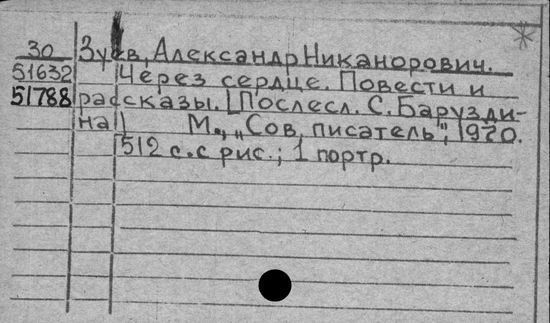 30 Зуев, Александр Никанорович.
51632 Через сердце. Повести и
51788 рассказы. [Послесл. С. Барузди-
на] М., „Сов. писатель", 1970.
512 с. с рис.; 1 портр.